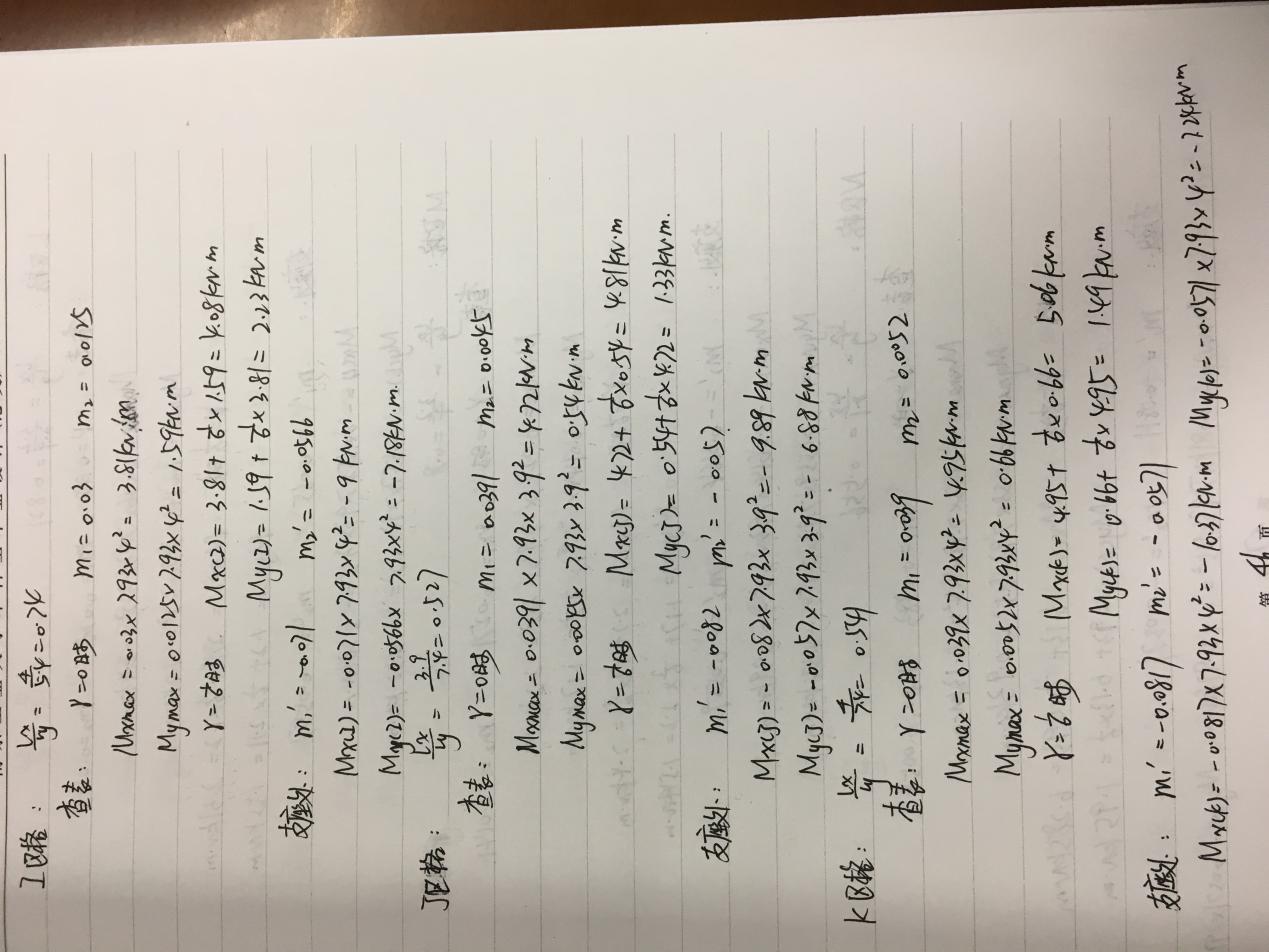 I区格: lx/ly = 4/5.4 = 0.74
查表: γ=0时 m₁=0.03 m₂=0.0125
Mxmax = 0.03×7.93×4² = 3.81kN·m
Mymax = 0.0125×7.93×4² = 1.59kN·m
γ=1/6时 Mx(2) = 3.81+1/6×1.59 = 4.08kN·m
My(2) = 1.59+1/6×3.81 = 2.23kN·m
支座处: m₁′=-0.071 m₂′=-0.0566
Mx(2) = -0.071×7.93×4² = -9kN·m
My(2) = -0.0566×7.93×4² = -7.18kN·m.
J区格: lx/ly = 3.9/7.4 = 0.527
查表: γ=0时 m₁=0.0391 m₂=0.0045
Mxmax = 0.0391×7.93×3.9² = 4.72kN·m
Mymax = 0.0045×7.93×3.9² = 0.54kN·m
γ=1/6时 Mx(J) = 4.72+1/6×0.54 = 4.81kN·m
My(J) = 0.54+1/6×4.72 = 1.33kN·m.
支座处: m₁′=-0.082 m₂′=-0.057
Mx(J) = -0.082×7.93×3.9² = -9.89kN·m
My(J) = -0.057×7.93×3.9² = -6.88kN·m
K区格: lx/ly = 4/7.4 = 0.541
查表: γ=0时 m₁=0.039 m₂=0.0052
Mxmax = 0.039×7.93×4² = 4.95kN·m
Mymax = 0.0052×7.93×4² = 0.66kN·m
γ=1/6时 Mx(k) = 4.95+1/6×0.66 = 5.06kN·m
My(k) = 0.66+1/6×4.95 = 1.49kN·m
支座处: m₁′=-0.0817 m₂′=-0.0571
Mx(k) = -0.0817×7.93×4² = -10.37kN·m My(k) = -0.0571×7.93×4² = -7.24kN·m
第 46 页